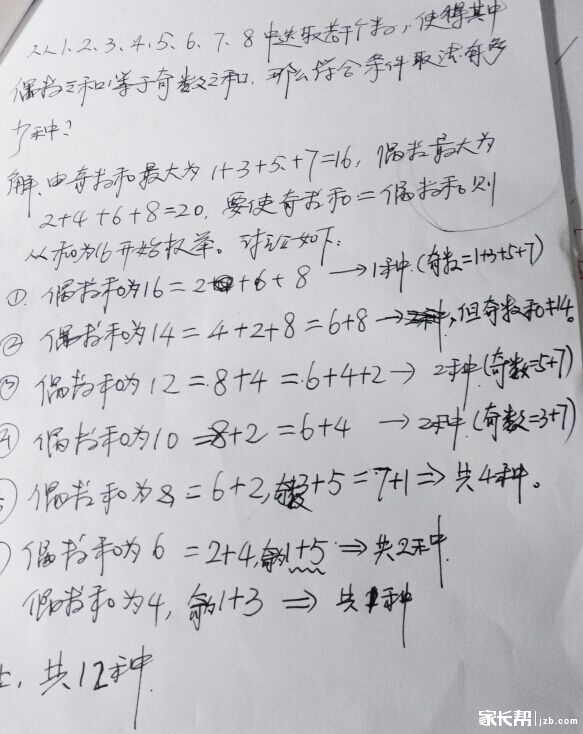 从1、2、3、4、5、6、7、8中选取若干个数，使得其中
偶数之和等于奇数之和，那么符合条件取法有多
少种？
解、由奇数和最大为1+3+5+7=16，偶数最大为
2+4+6+8=20，要使奇数和=偶数和，则
从和为16开始枚举。讨论如下：
①、偶数和为16=2+6+8 → 1种（奇数=1+3+5+7）
② 偶数和为14=4+2+8=6+8 → 但奇数和≠14。
③ 偶数和为12=8+4=6+4+2 → 2种（奇数=5+7）
偶数和为10=8+2=6+4 → 2种（奇数=3+7）
偶数和为8=6+2，3+5=7+1 ⇒ 共4种。
偶数和为6=2+4，1+5 ⇒ 共2种
偶数和为4，1+3 ⇒ 共1种
共12种
家长帮 jzb.com